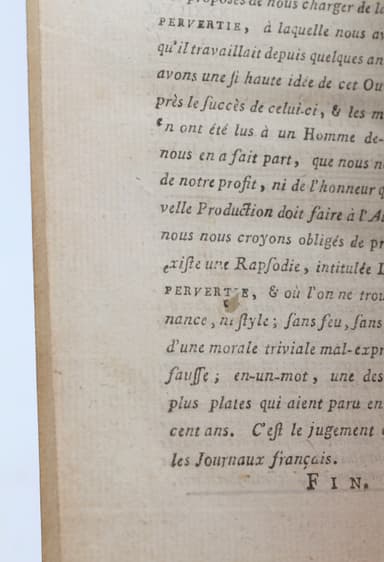 proposés de nous charger de la
PERVERTIE, à laquelle nous av
qu'il travaillait depuis quelques an
avons une ſi haute idée de cet Ou
près le ſuccès de celui-ci, & les m
'n ont été lus à un Homme de-
nous en a fait part, que nous n
de notre profit, ni de l'honneur q
velle Production doit faire à l'A
nous nous croyons obligés de pr
exiſte une Rapſodie, intitulée L
PERVERTIE, & où l'on ne trou
nance, ni ſtyle; ſans feu, ſans
d'une morale triviale mal-expr
fauſſe; en-un-mot, une des
plus plates qui aient paru en
cent ans. C'eſt le jugement
les Journaux français.
FIN.